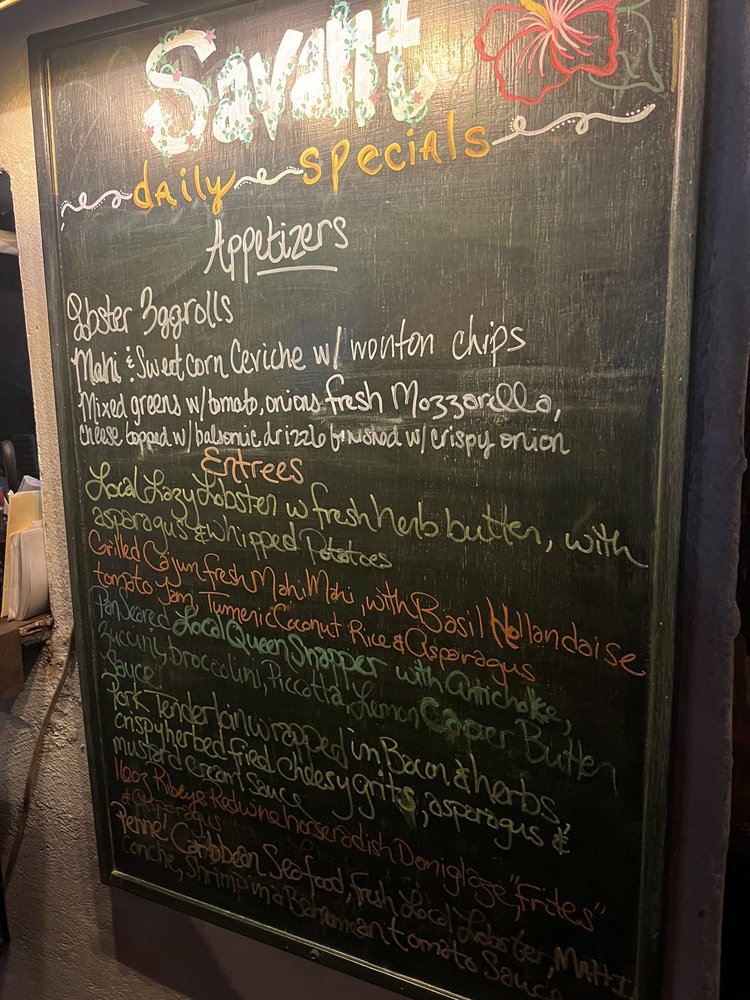 Savant
daily specials
Appetizers
Lobster Eggrolls
Mahi & Sweet corn Ceviche w/ wonton chips
Mixed greens w/ tomato, onions fresh Mozzarella,
cheese topped w/ balsamic drizzle finished w/ crispy onion
Entrees
Local Lazy Lobster w fresh herb butter, with
asparagus & whipped Potatoes
Grilled Cajun fresh Mahi Mahi, with Basil Hollandaise
tomato Jam, Tumeric Coconut Rice & Asparagus
Pan Seared Local Queen Snapper with artichoke,
Zuccini, broccolini, Piccotta, Lemon Caper Butter
Sauce
Pork Tenderloin wrapped in Bacon & herbs,
crispy herbed fried cheesy grits, asparagus &
mustard cream sauce
16oz Ribeye Red wine horseradish Demiglaze, "Frites"
& Asparagus
Penne' Caribbean Seafood, fresh Local Lobster, MAHI
conche, Shrimp in a Bahamian tomato Sauce